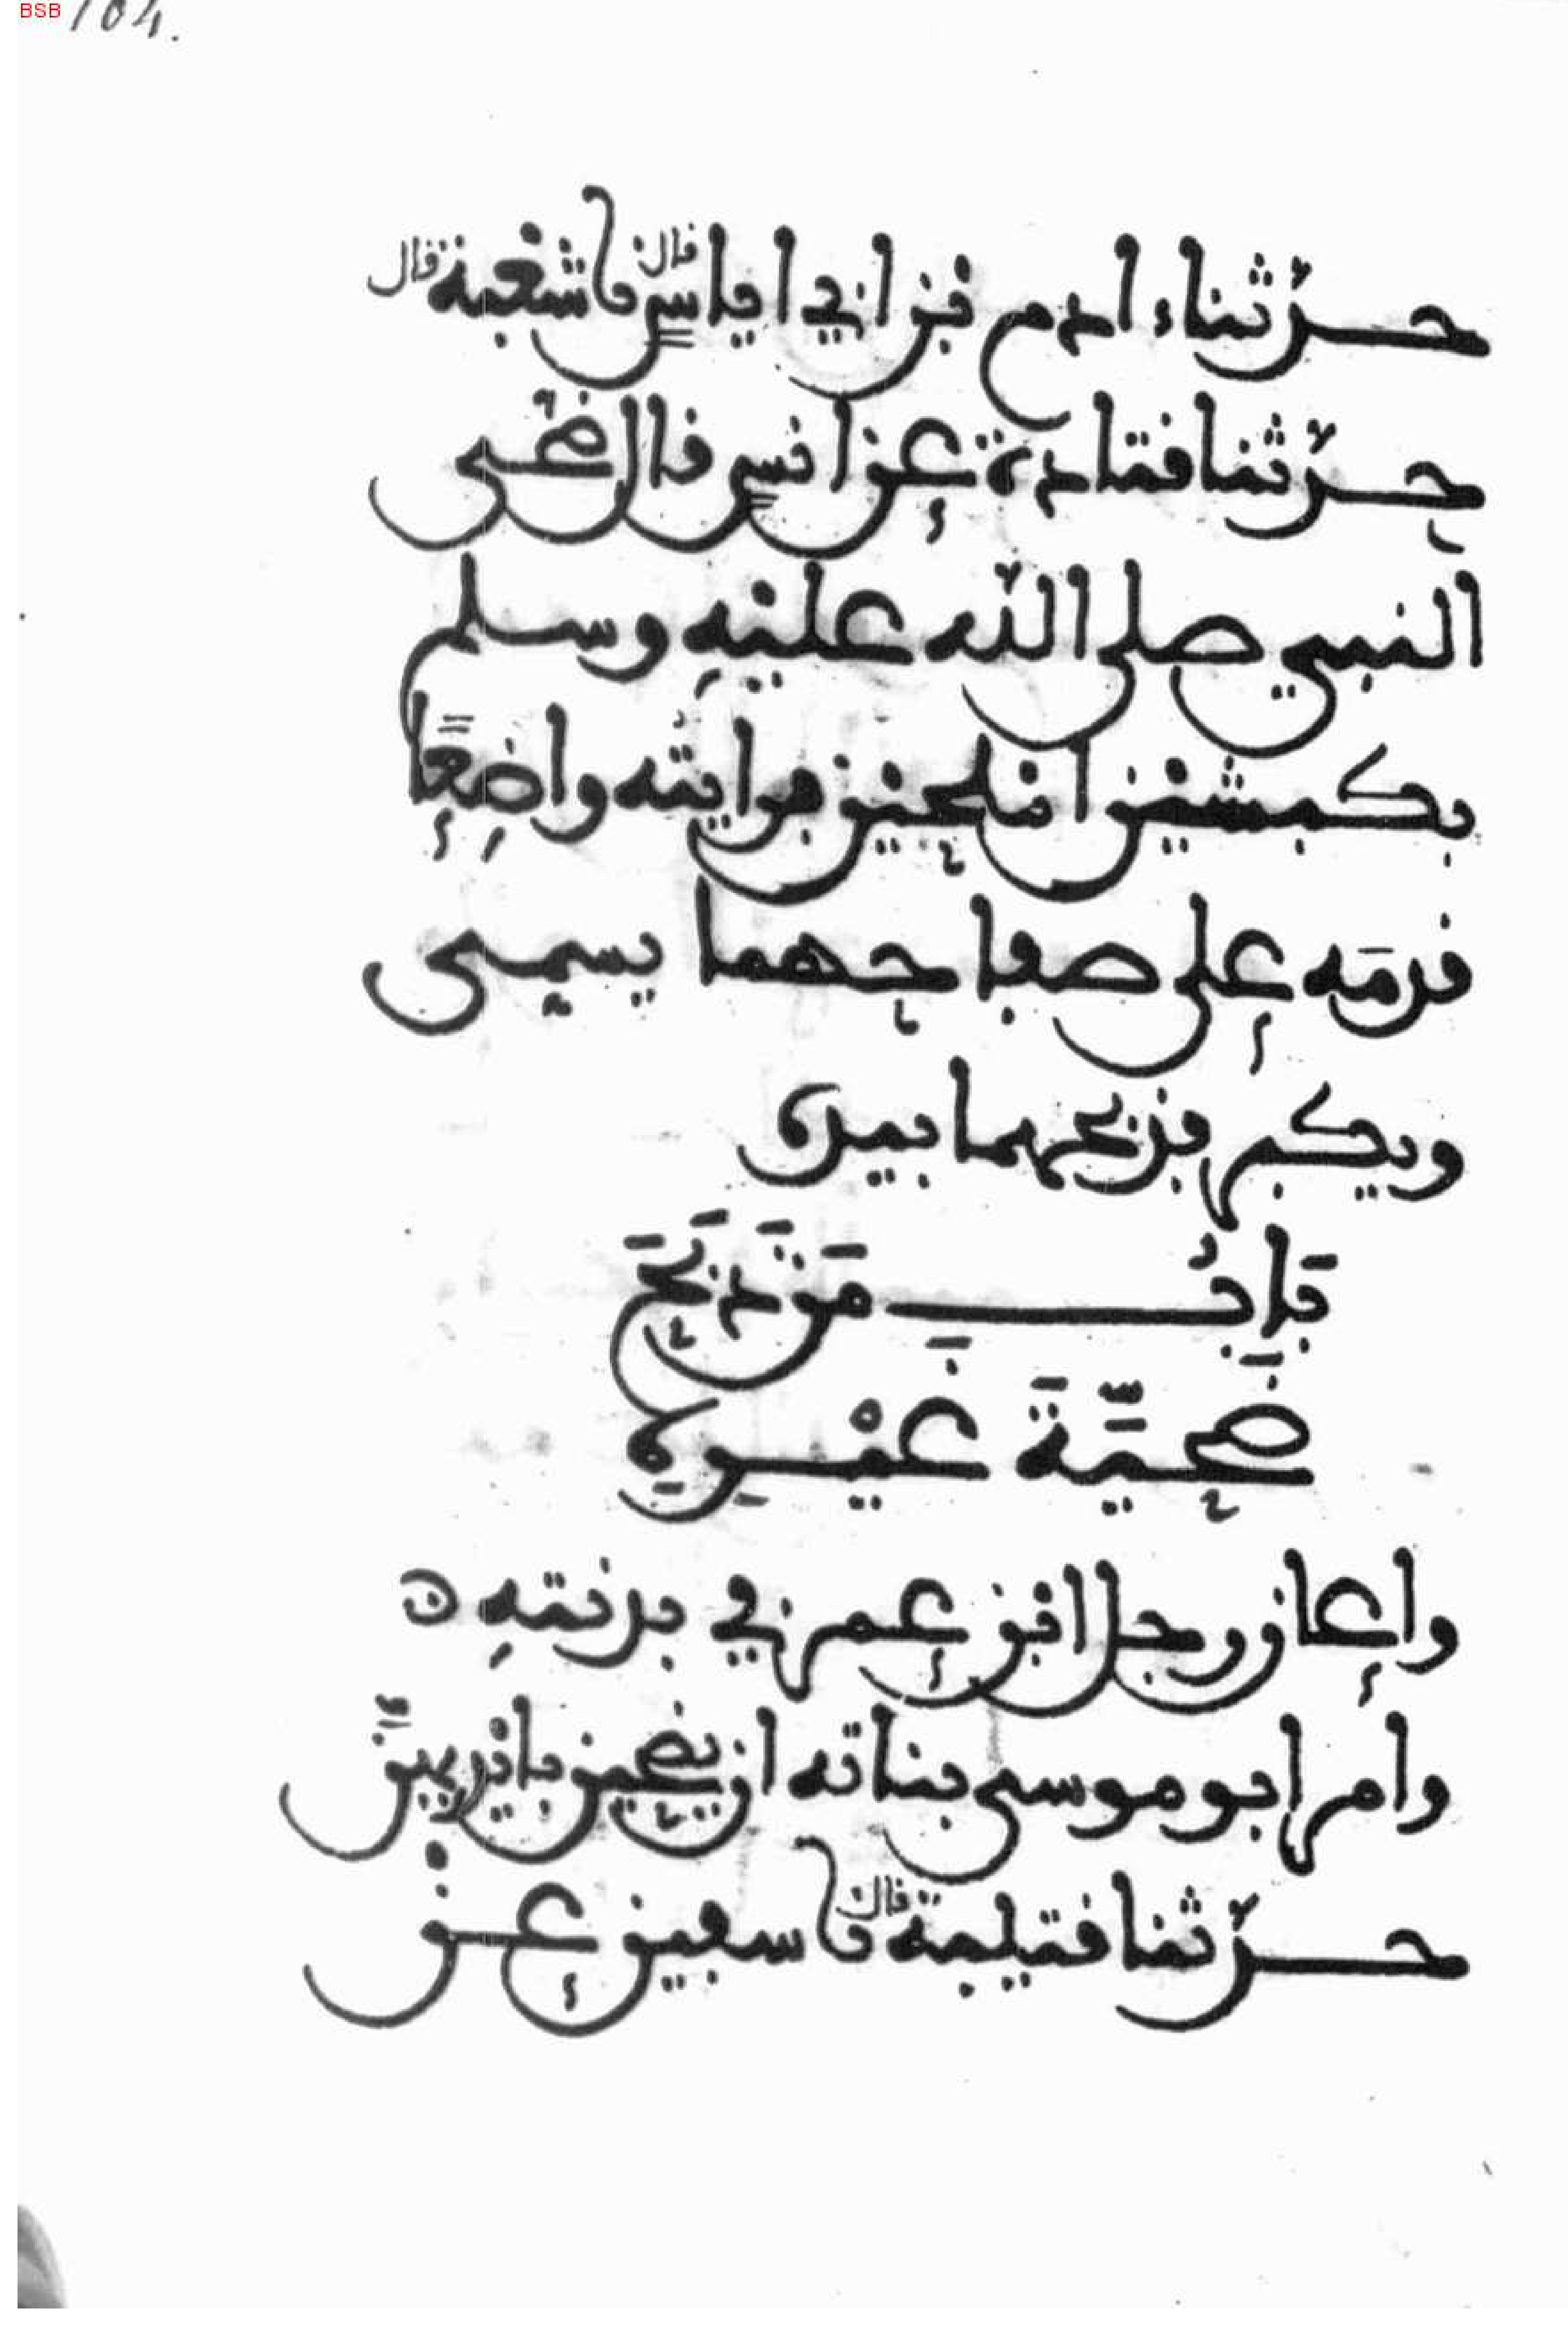 BSB 104.
حدثنا ءادم بن ابي اياس قال نا شعبة قال
حدثنا قتادة عن انس قال ضحى
النبي صلى الله عليه وسلم
بكبشين املحين فرايته واضعًا
قدمه على صفاحهما يسمى
ويكبر فذبحهما بيده
بَابُ مَنْ ذَبَحَ
ضَحِيَّةَ غَيْرِهِ
واعان رجل ابن عمر في بدنته
وامر ابو موسى بناته ان يضحين بايْديهِنَّ
حدثنا قتيبة قال نا سفين عن